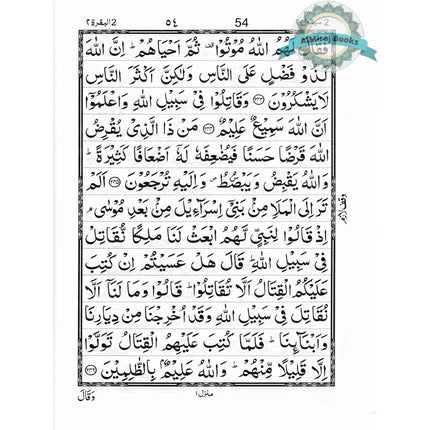 2 البقرة ٢
٥٤
54
Al Miraj Books
فَقَالَ لَهُمُ اللهُ مُوْتُوْا ثُمَّ اَحْيَاهُمْ ؕ اِنَّ اللهَ
لَذُوْ فَضْلٍ عَلَى النَّاسِ وَلٰكِنَّ اَكْثَرَ النَّاسِ
لَا يَشْكُرُوْنَ ۝ وَقَاتِلُوْا فِىْ سَبِيْلِ اللهِ وَاعْلَمُوْۤا
اَنَّ اللهَ سَمِيْعٌ عَلِيْمٌ ۝ مَنْ ذَا الَّذِىْ يُقْرِضُ
اللهَ قَرْضًا حَسَنًا فَيُضٰعِفَهٗ لَهٗۤ اَضْعَافًا كَثِيْرَةً ؕ
وَاللهُ يَقْبِضُ وَيَبْصُۜطُ وَاِلَيْهِ تُرْجَعُوْنَ ۝ اَلَمْ
تَرَ اِلَى الْمَلَاِ مِنْۢ بَنِىْۤ اِسْرَآءِيْلَ مِنْۢ بَعْدِ مُوْسٰى ۘ
اِذْ قَالُوْا لِنَبِىٍّ لَّهُمُ ابْعَثْ لَنَا مَلِكًا نُّقَاتِلْ
فِىْ سَبِيْلِ اللهِ ؕ قَالَ هَلْ عَسَيْتُمْ اِنْ كُتِبَ
عَلَيْكُمُ الْقِتَالُ اَلَّا تُقَاتِلُوْا ؕ قَالُوْا وَمَا لَنَاۤ اَلَّا
نُقَاتِلَ فِىْ سَبِيْلِ اللهِ وَقَدْ اُخْرِجْنَا مِنْ دِيَارِنَا
وَاَبْنَآئِنَا ؕ فَلَمَّا كُتِبَ عَلَيْهِمُ الْقِتَالُ تَوَلَّوْا
اِلَّا قَلِيْلًا مِّنْهُمْ ؕ وَاللهُ عَلِيْمٌۢ بِالظّٰلِمِيْنَ ۝
وقف لازم
منزل ١
وَقَالَ